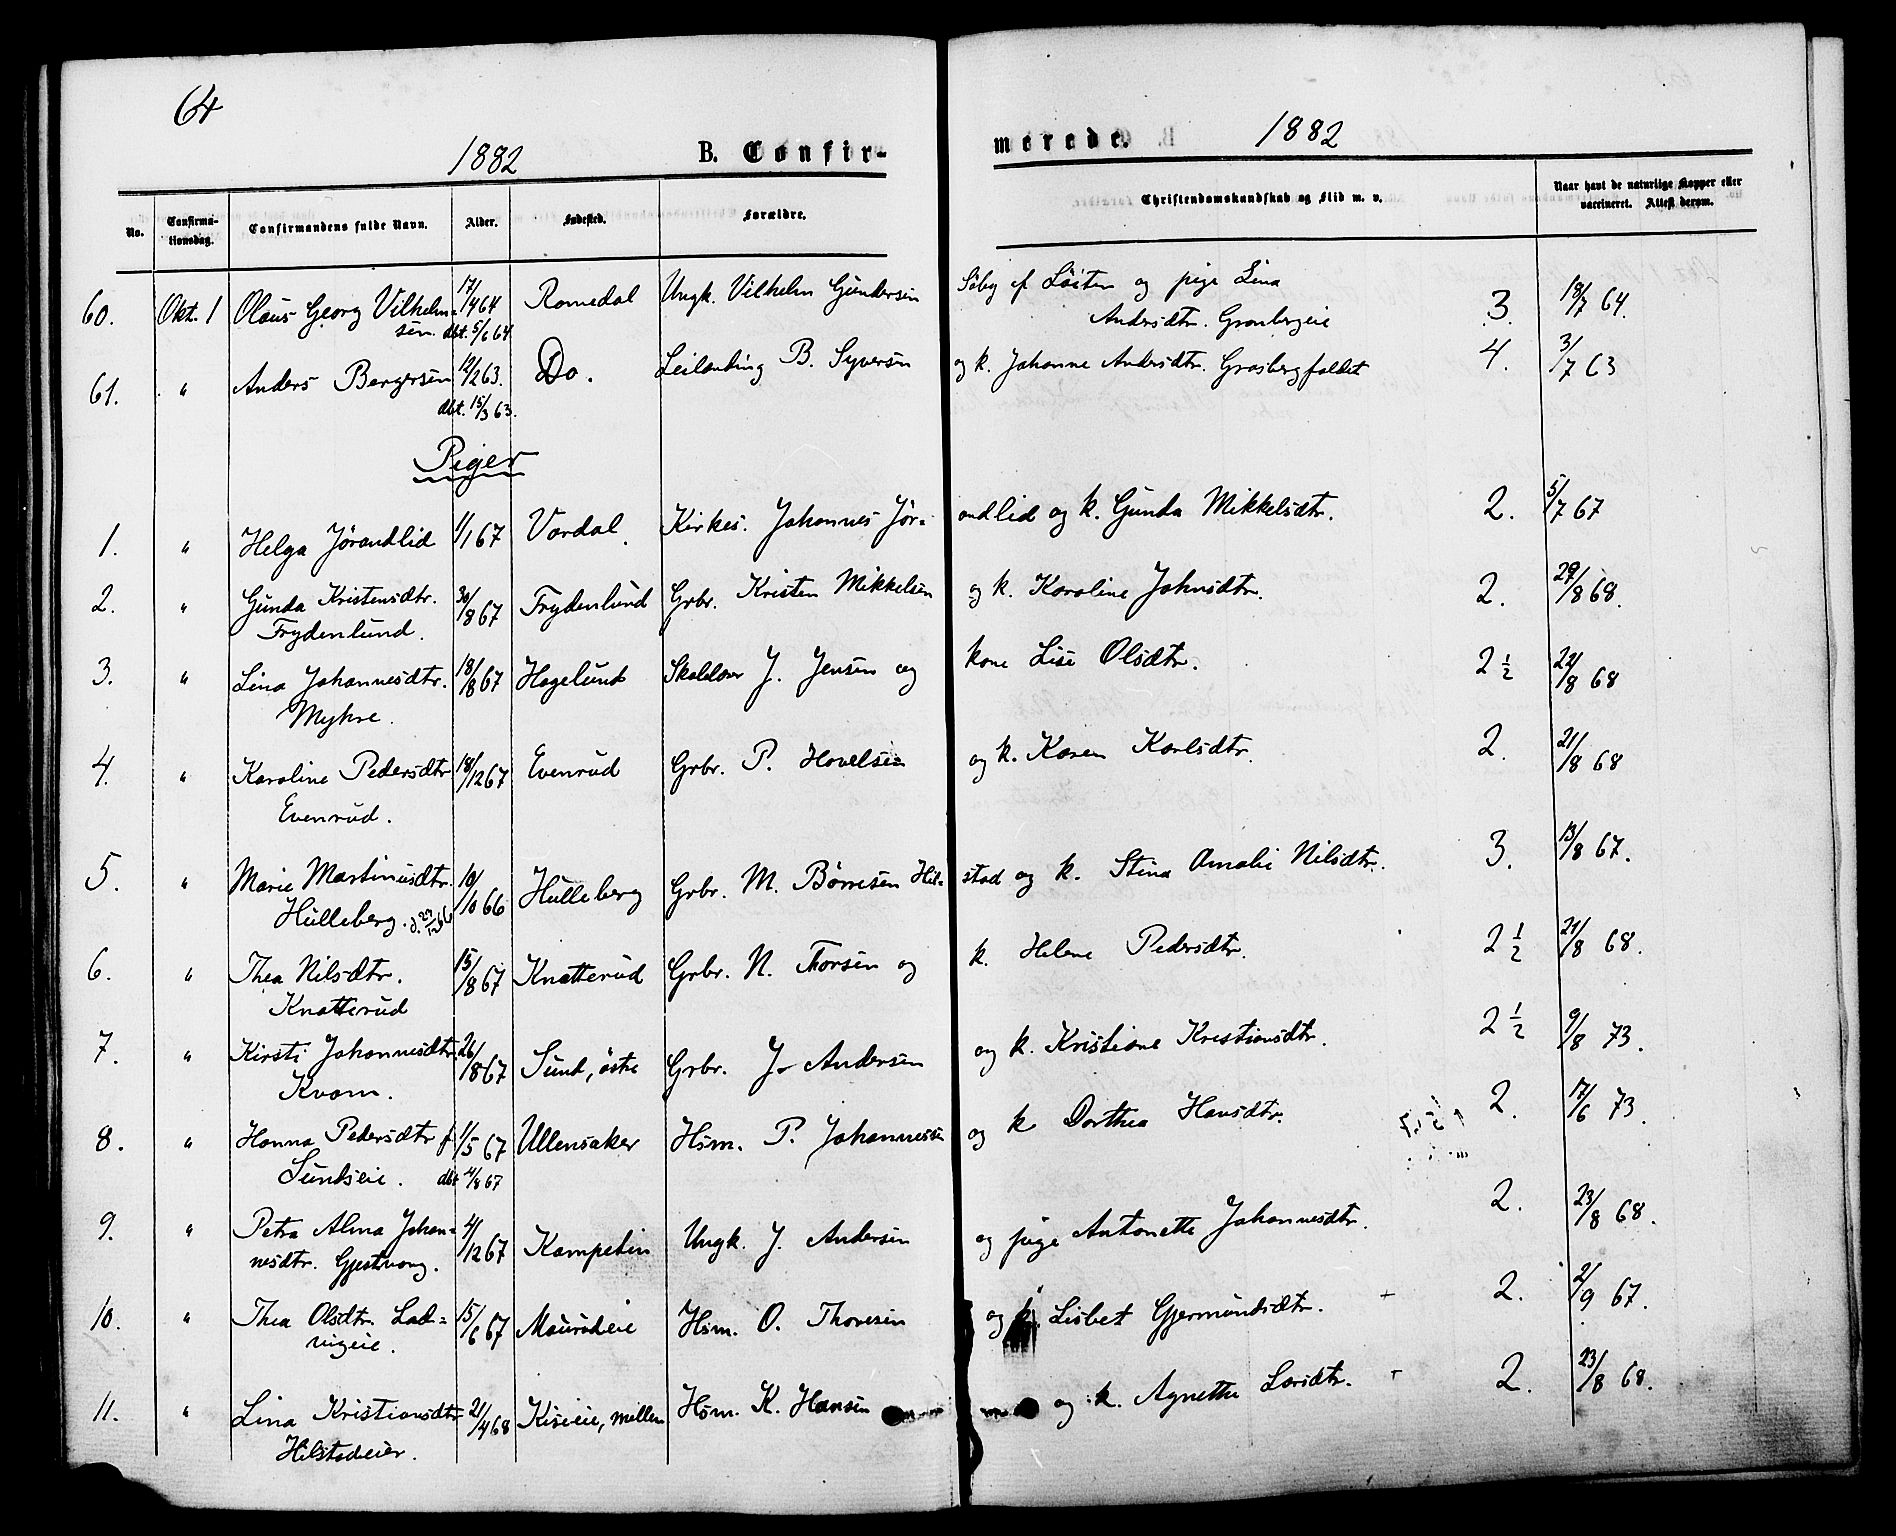 64
1882 B. Confir- merede. 1882
No. Confirma-tionsdag. Confirmandens fulde Navn. Alder. Fødested. Forældre. Christendomskundskab og Flid m. v. Naar havt de naturlige Kopper eller vaccineret. Attest derom.
60. Okt. 1 Olaus Georg Vilhelm- 17/4 64 Romedal Ungk. Vilhelm Gundersen af Løiten og pige Lina 3. 18/7 64.
sen. dbt. 5/6 64 Andersdtr. Gronbergeie
61. " Anders Bergersen 12/2 63. Do. Leilending B. Syversen og k. Johanne Andersdtr. Grasbergfaldet 4. 3/7 63
dbt. 15/3 63.
Piger
1. " Helga Jørandlid 1/1 67 Vardal. Kirkes. Johannes Jør- andlid og k. Gunda Mikkelsdtr. 2. 5/7 67
2. " Gunda Kristensdtr. 30/8 67 Frydenlund Grbr. Kristen Mikkelsen og k. Karoline Johnsdtr. 2. 29/8 68.
Frydenlund.
3. " Lina Johannesdtr. 18/8 67 Hagelund J. Jensen og kone Lise Olsdtr. 2 1/2 22/8 68
Myhre.
4. " Karoline Pedersdtr 18/12 67 Evenrud Grbr. P. Hovelsen og k. Karen Karlsdtr. 2. 21/8 68
Evenrud.
5. " Marie Martinusdtr. 10/10 66 Hulleberg Grbr. M. Børresen Hil- stad og k. Stina Amalie Nilsdtr. 3. 13/8 67.
Hulleberg. d. 29/12 66
6. " Thea Nilsdtr. 15/8 67 Knatterud Grbr. N. Thorsen og k. Helene Pedersdtr. 2 1/2 21/8 68.
Knatterud
7. " Kirsti Johannesdtr 26/8 67 Sund, østre Grbr. J. Andersen og k. Kristiane Kristiansdtr. 2 1/2 9/8 73.
Kvam.
8. " Hanna Pedersdtr f. 1/5 67 Ullensaker Hsm. P. Johannessen og k Dorthea Hansdtr. 2. 17/6 73.
Sundseie. dbt 4/8 67
9. " Petra Alma Johan- 4/12 67 Kampetin Ungk. J. Andersen og pige Antonette Johannesdtr. 2. 23/8 68.
nesdtr. Gjestvang.
10. " Thea Olsdtr. Lad- 15/6 67 Maurudeie Hsm. O. Thoresen og k. Lisbet Gjermundsdtr. 2. 2/9 67.
rigeie.
11. " Lina Kristiansdtr 21/4 68 Kiseeie, mellem Hsm. K. Hansen og k. Agnethe Larsdtr. 2. 23/8 68.
Hilstadeier.